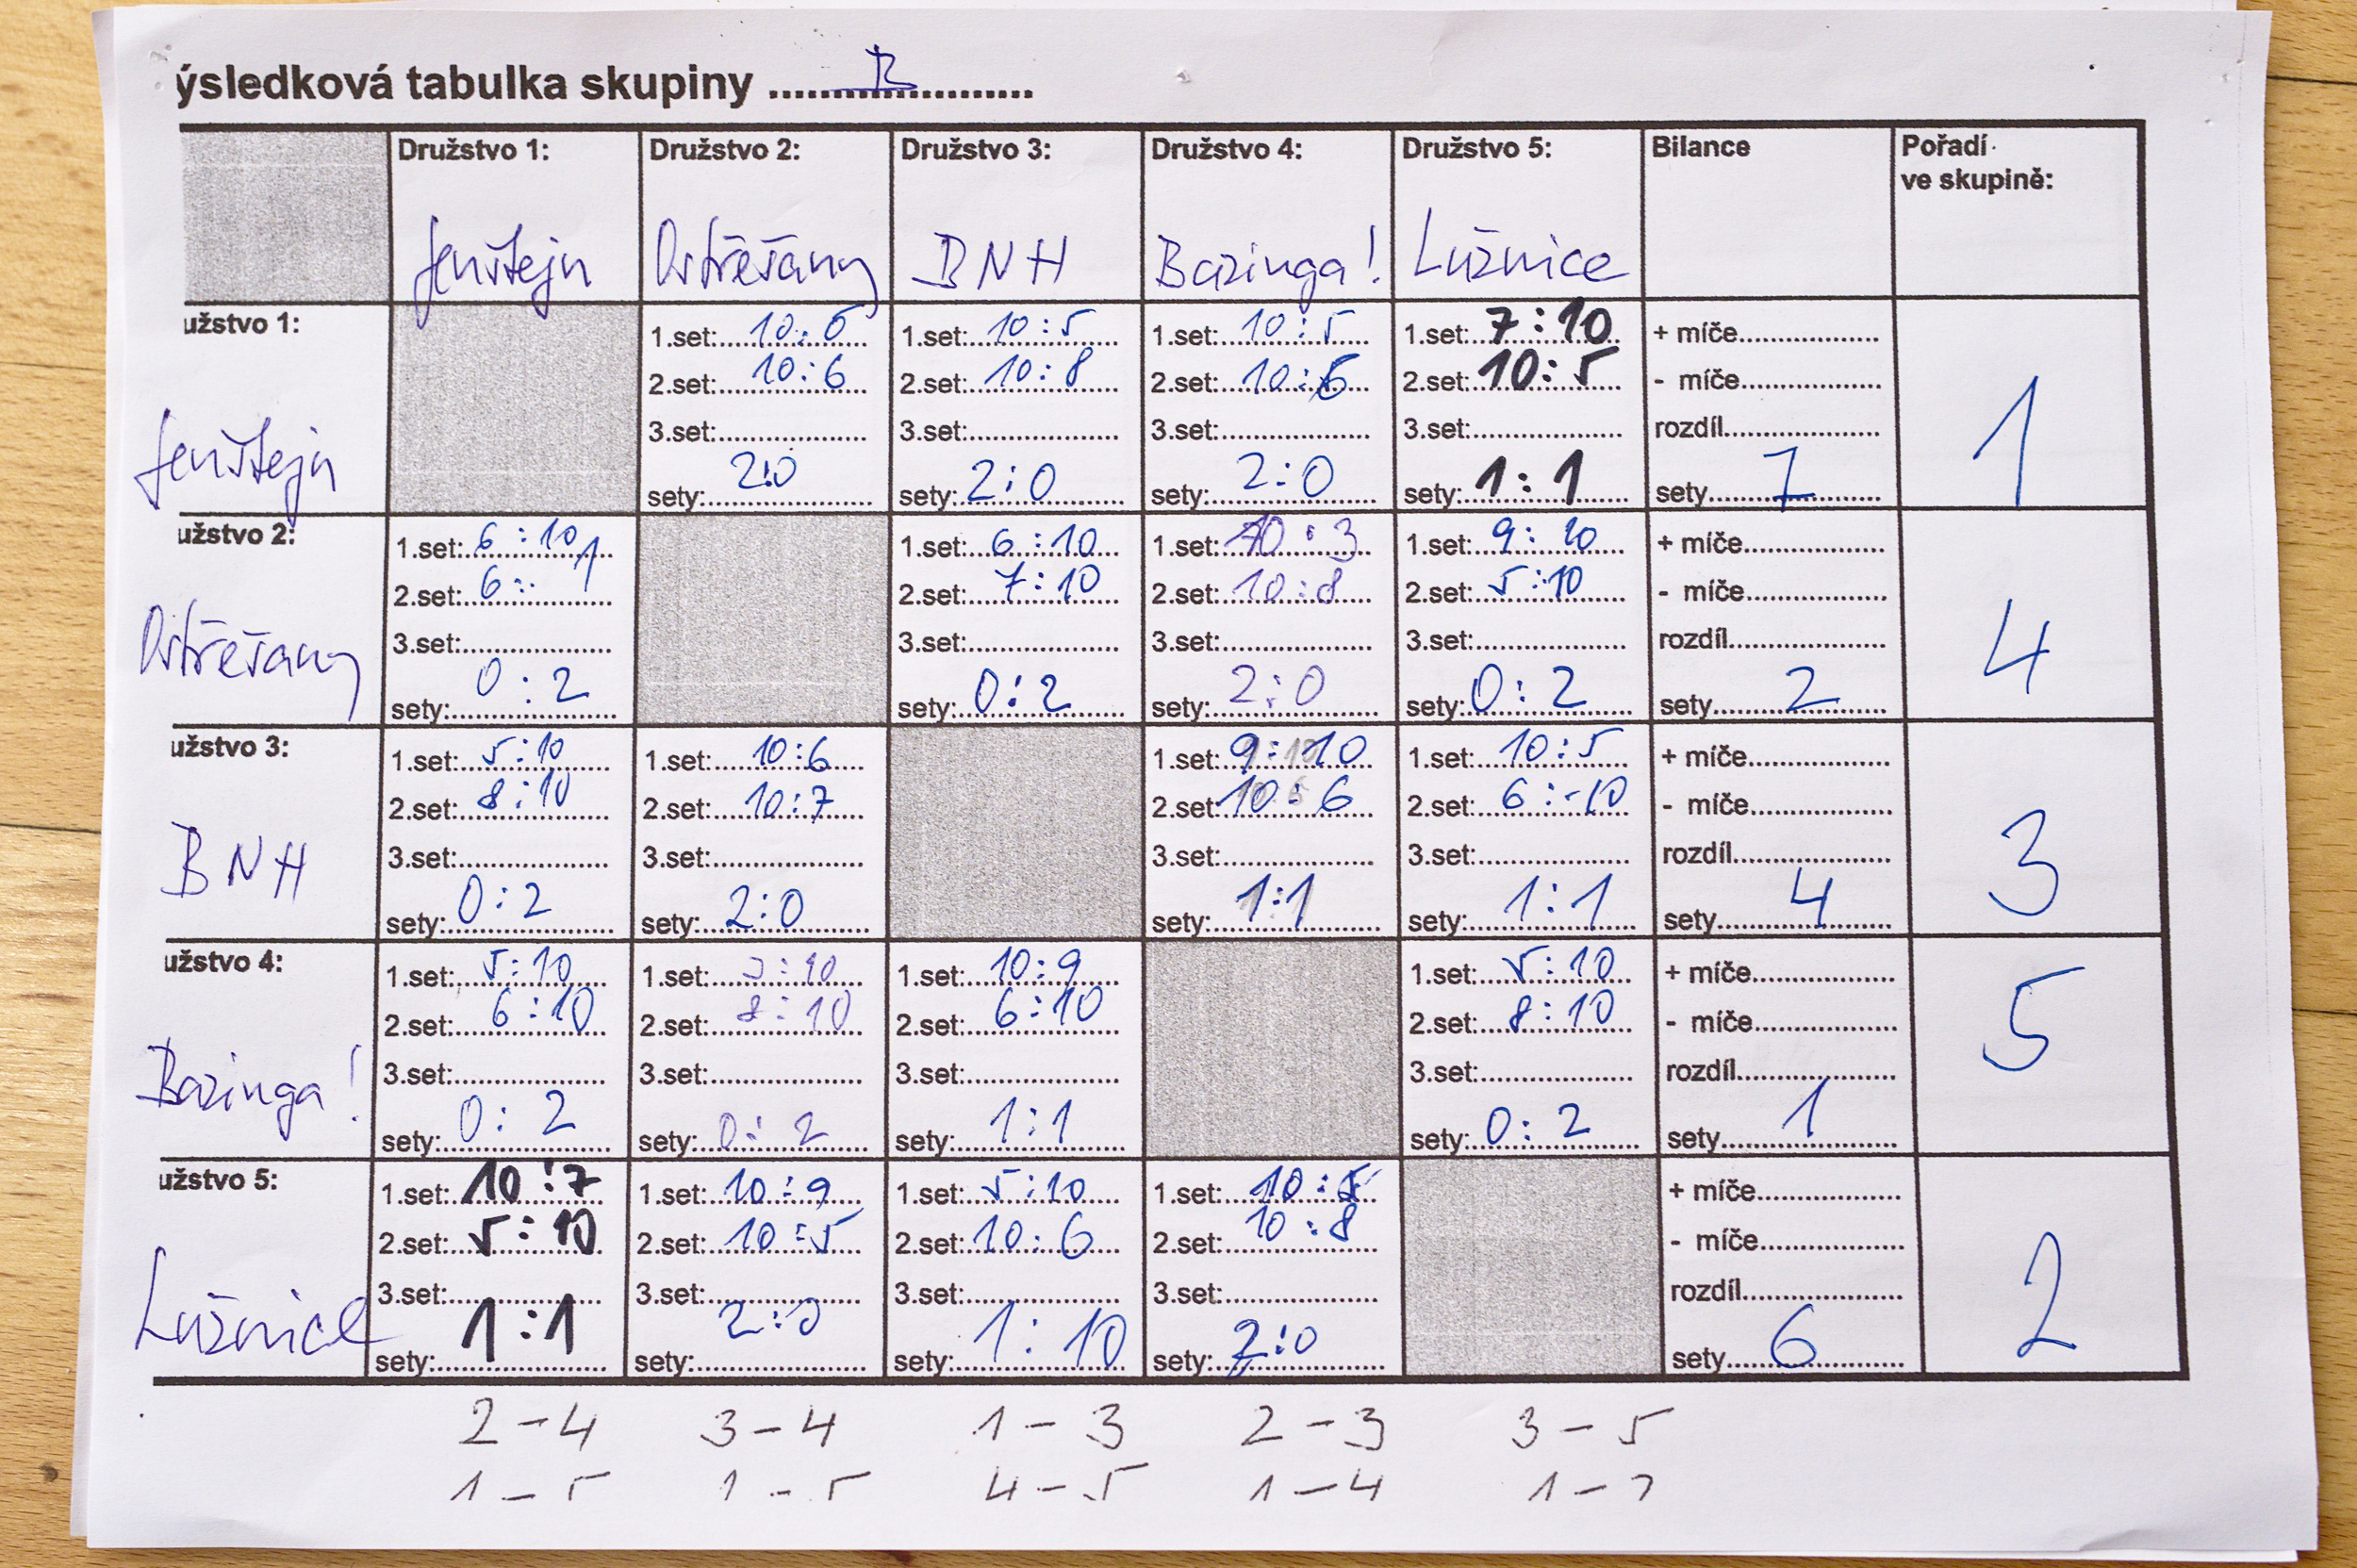 ýsledková tabulka skupiny ........B........
Družstvo 1: Družstvo 2: Družstvo 3: Družstvo 4: Družstvo 5: Bilance Pořadí
ve skupině:
Jenštejn Ostřešany BNH Bazinga! Lužnice
užstvo 1: 1.set: 10:6 1.set: 10:5 1.set: 10:5 1.set: 7:10 + míče
2.set: 10:6 2.set: 10:8 2.set: 10:6 2.set: 10:5 - míče
Jenštejn 3.set: 3.set: 3.set: 3.set: rozdíl 1
sety: 2:0 sety: 2:0 sety: 2:0 sety: 1:1 sety 7
užstvo 2: 1.set: 6:10 1.set: 6:10 1.set: 10:3 1.set: 9:10 + míče
2.set: 6: 1 2.set: 7:10 2.set: 10:8 2.set: 5:10 - míče
Ostřešany 3.set: 3.set: 3.set: 3.set: rozdíl 4
sety: 0:2 sety: 0:2 sety: 2:0 sety: 0:2 sety 2
užstvo 3: 1.set: 5:10 1.set: 10:6 1.set: 9:10 1.set: 10:5 + míče
2.set: 8:10 2.set: 10:7 2.set: 10:6 2.set: 6:10 - míče
BNH 3.set: 3.set: 3.set: 3.set: rozdíl 3
sety: 0:2 sety: 2:0 sety: 1:1 sety: 1:1 sety 4
užstvo 4: 1.set: 5:10 1.set: 3:10 1.set: 10:9 1.set: 5:10 + míče
2.set: 6:10 2.set: 8:10 2.set: 6:10 2.set: 8:10 - míče
Bazinga! 3.set: 3.set: 3.set: 3.set: rozdíl 5
sety: 0:2 sety: 0:2 sety: 1:1 sety: 0:2 sety 1
užstvo 5: 1.set: 10:7 1.set: 10:9 1.set: 5:10 1.set: 10:5 + míče
2.set: 5:10 2.set: 10:5 2.set: 10:6 2.set: 10:8 - míče
Lužnice 3.set: 3.set: 3.set: 3.set: rozdíl 2
sety: 1:1 sety: 2:0 sety: 1:10 sety: 2:0 sety 6
2-4 3-4 1-3 2-3 3-5
1-5 1-5 4-5 1-4 1-2